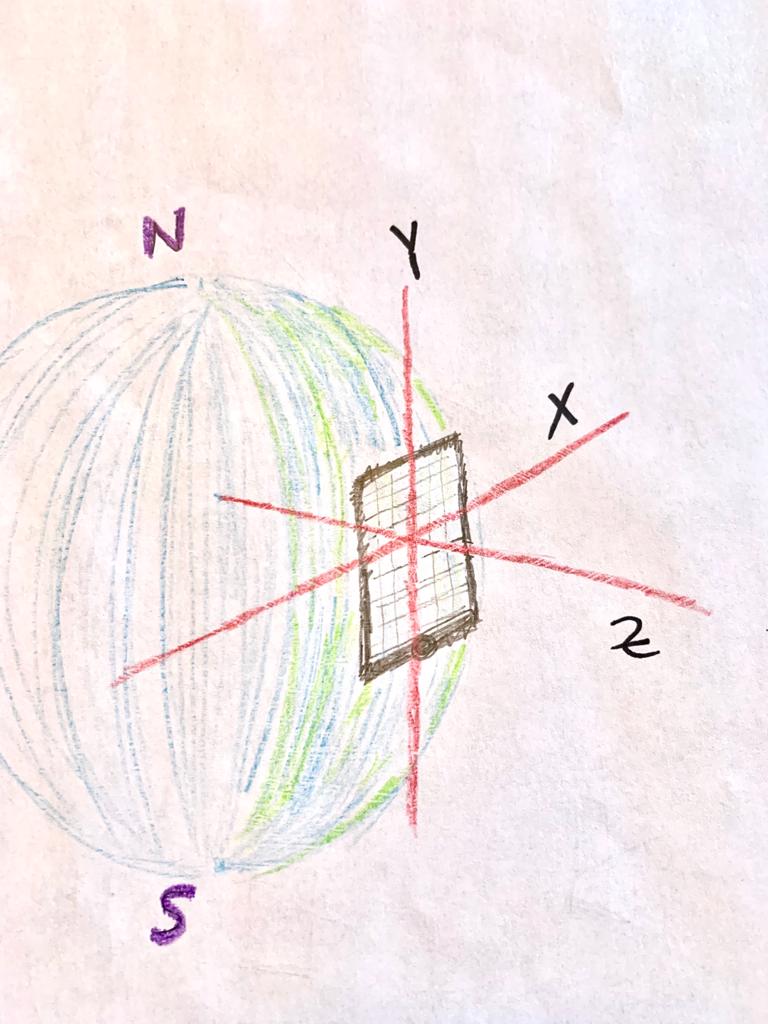 N
Y
X
Z
S